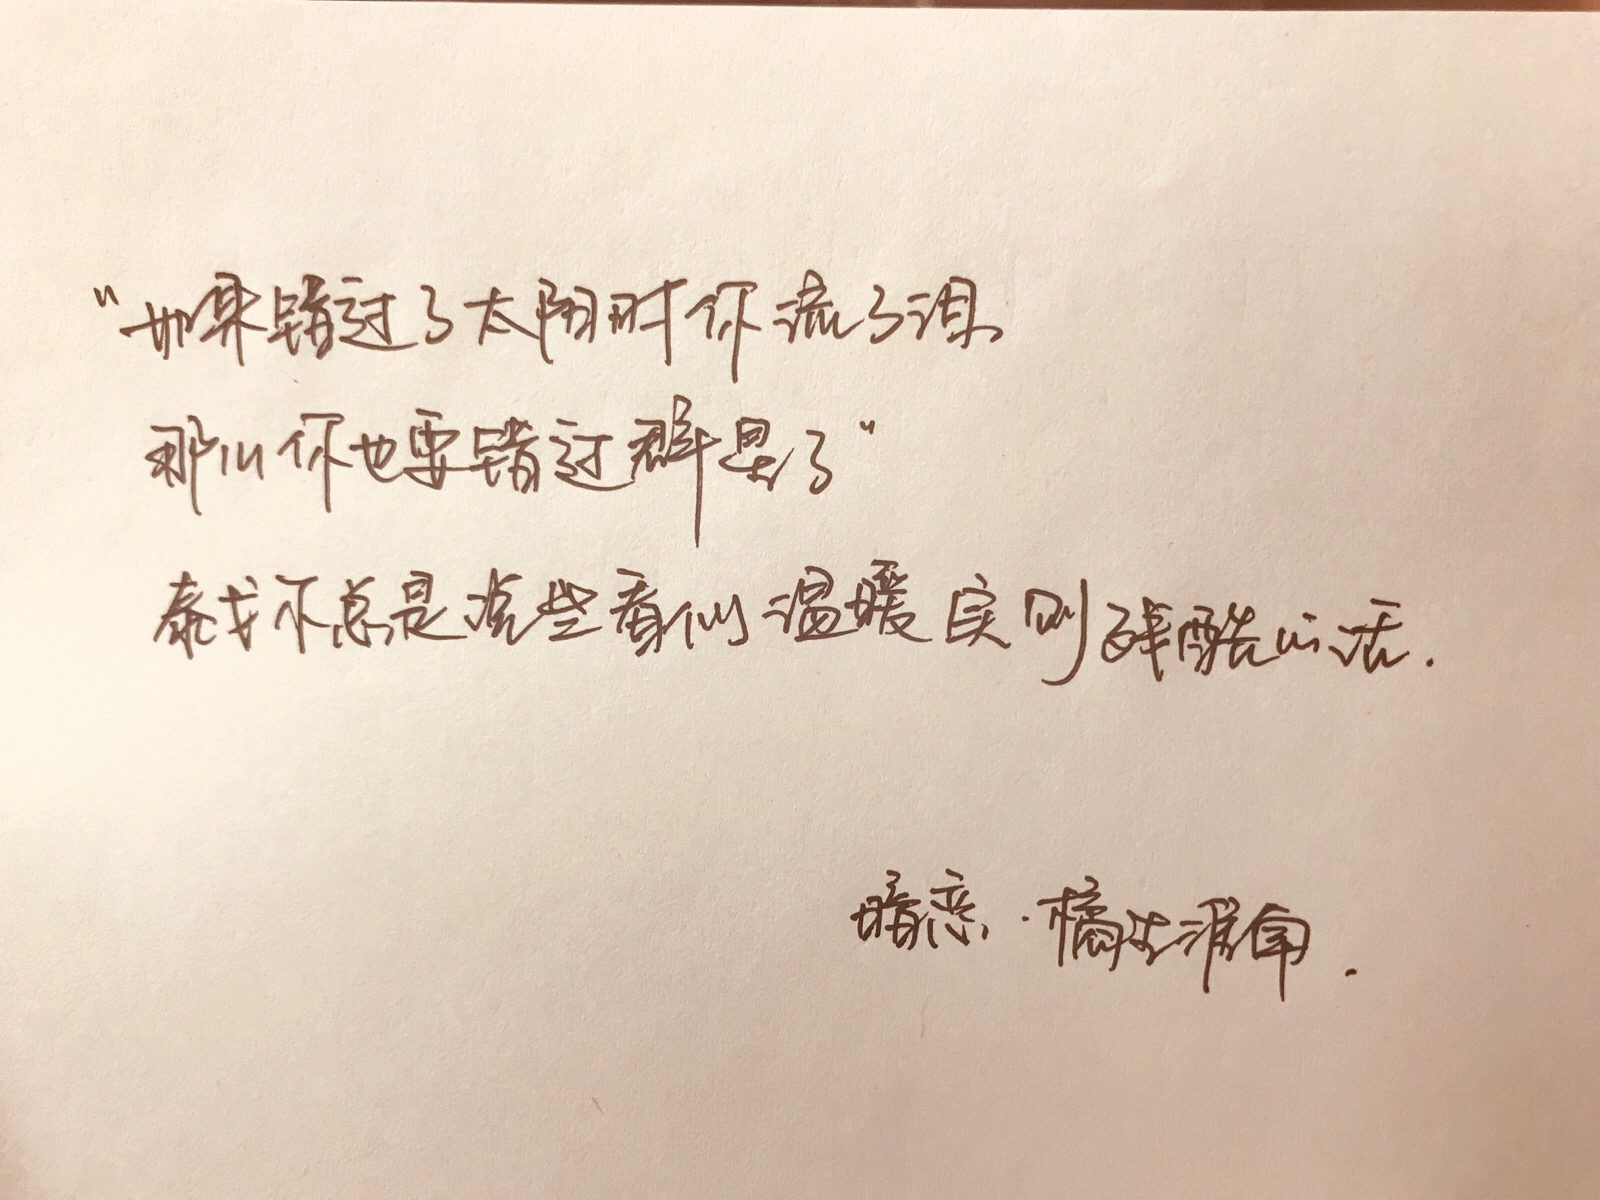 “如果错过了太阳时你流了泪
那么你也要错过群星了”
泰戈尔总是说些看似温暖实则残酷的话.
暗恋·橘生淮南.